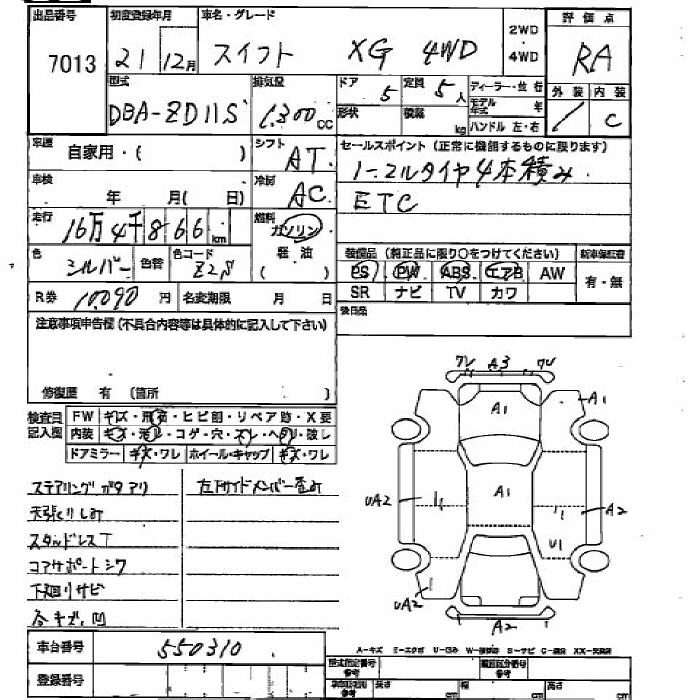 出品番号 初度登録年月 車名・グレード 2WD・4WD 評価点
7013 21 12月 スイフト XG 4WD RA
型式 排気量 ドア 定員 ディーラー・並行 外装 内装
DBA-ZD11S 1,300cc 5 5人 モデル年式 年 C
形状 積載 kg ハンドル 左・右
車歴 自家用・( ) シフト AT セールスポイント(正常に機能するものに限ります)
ノーマルタイヤ4本積み
車検 年 月(日) 冷房 AC
ETC
走行 16万4千866km 燃料 ガソリン
軽油
( )
色 シルバー 色替 色コード Z2S
装備品(純正品に限り○をつけてください) 新車保証書
PS PW ABS エアB AW 有・無
SR ナビ TV カワ
R券 10090円 名変期限 月 日
後日品
注意事項申告欄(不具合内容等は具体的に記入して下さい)
修復歴 有 (箇所 )
検査員記入欄 FW キズ・飛石・ヒビ割・リペア跡・X要
内装 キズ・汚レ・コゲ・穴・スレ・ヘタリ・破レ
ドアミラー キズ・ワレ ホイール・キャップ キズ・ワレ
ステアリングガタアリ 左サイドメンバー歪み
天張りしみ
スタッドレスT
コアサポートシワ
下廻りサビ
各キズ、凹
A3
A1
A1
A1
UA2
A2
U1
UA2
A2
車台番号 550310
登録番号
A-キズ E-エクボ U-凹み W-補修跡 S-サビ C-腐食 XX-交換済
型式指定番号 参考 類別区分番号 参考
長さ cm 幅 cm 高さ cm